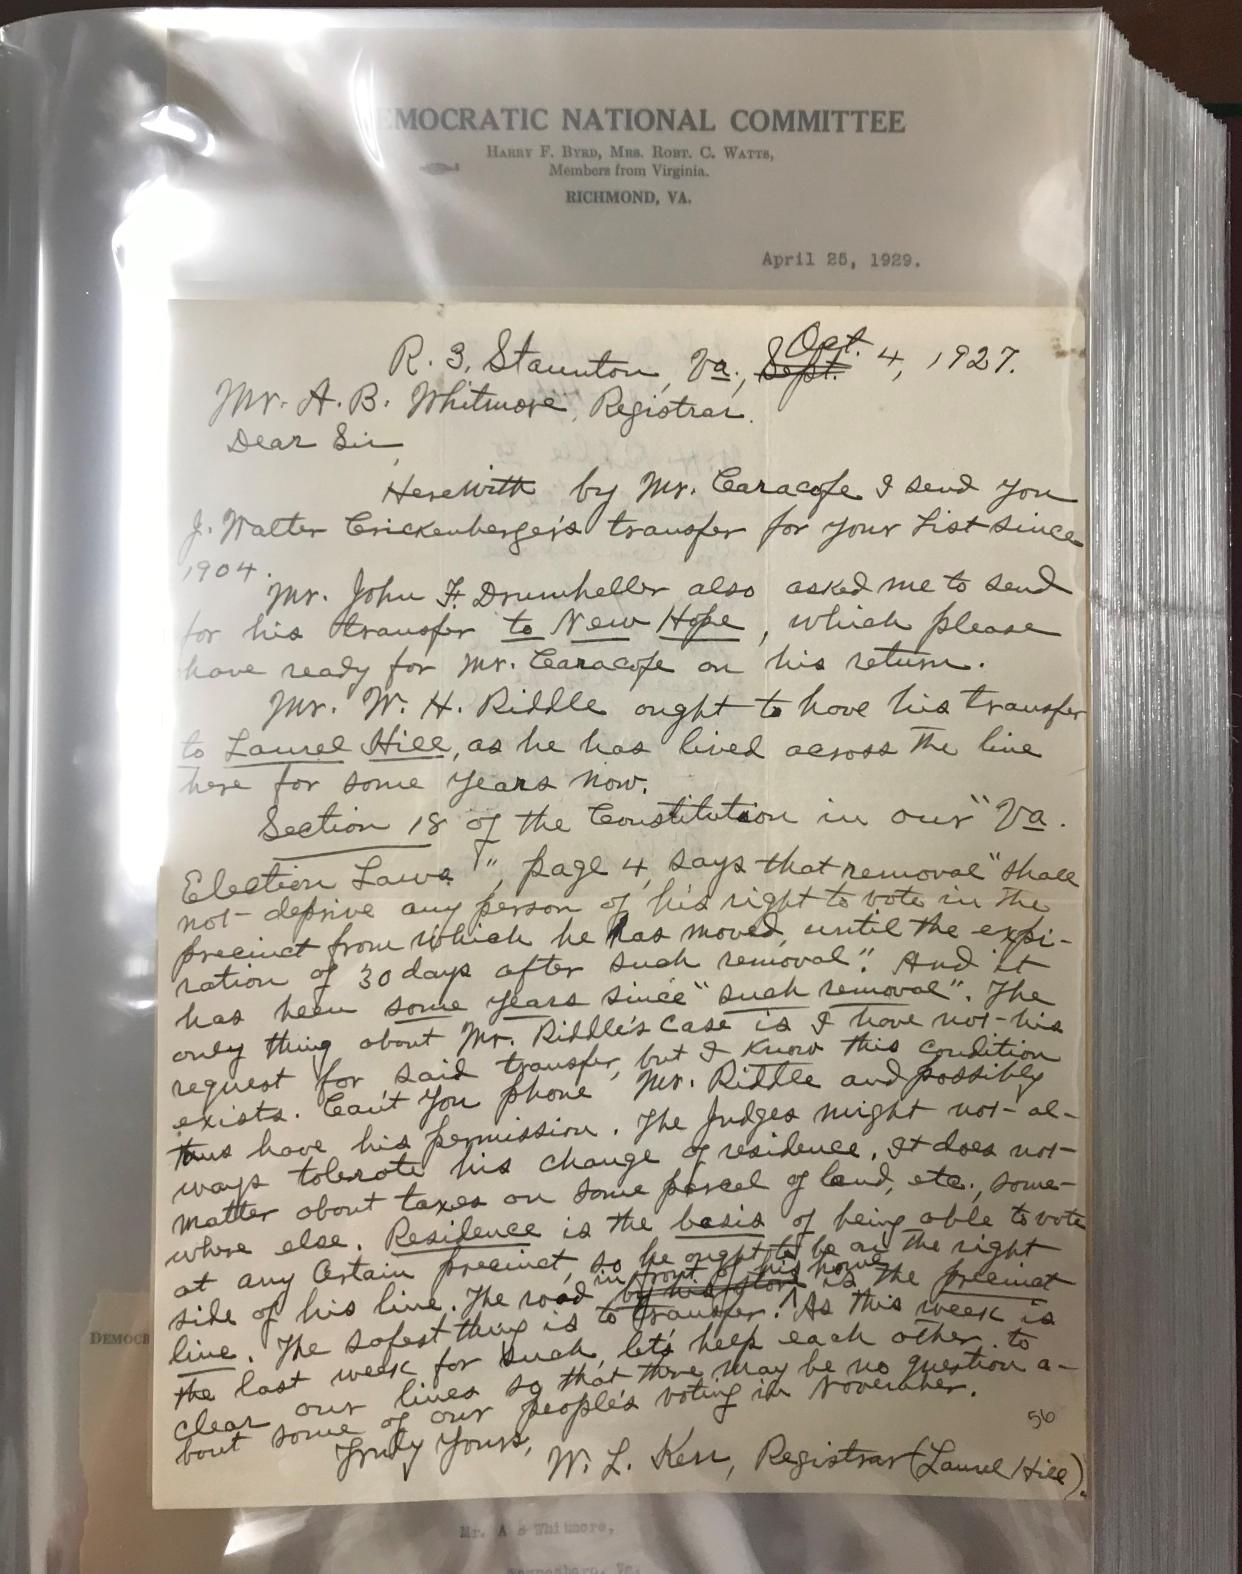 EMOCRATIC NATIONAL COMMITTEE
HARRY F. BYRD, MRS. ROBT. C. WATTS,
Members from Virginia.
RICHMOND, VA.
April 25, 1929.
R. 3, Staunton, Va., Sept. Oct. 4, 1927.
Mr. A. B. Whitmore, Registrar.
Dear Sir,
Herewith by Mr. Caracofe I send you
J. Walter Crickenberger's transfer for your List since
1904.
Mr. John F. Drumheller also asked me to send
for his transfer to New Hope, which please
have ready for Mr. Caracofe on his return.
Mr. W. H. Riddle ought to have his transfer
to Laurel Hill, as he has lived across the line
here for some years now.
Section 18 of the Constitution in our "Va.
Election Laws", page 4, says that removal "shall
not deprive any person of his right to vote in the
precinct from which he has moved, until the expi-
ration of 30 days after such removal". And it
has been some years since "such removal". The
only thing about Mr. Riddle's case is I have not his
request for said transfer, but I know this condition
exists. Can't you phone Mr. Riddle and possibly
thus have his permission. The Judges might not al-
ways tolerate his change of residence. It does not
matter about taxes on some parcel of land, etc., some-
where else. Residence is the basis of being able to vote
at any certain precinct, so he ought to be on the right
side of his line. The road by his store in front of his home is the precinct
line. The safest thing is to transfer! As this week is
the last week for such, let's help each other to
clear our lines so that there may be no question a-
bout some of our people's voting in November.
Truly Yours,
W. L. Kerr, Registrar (Laurel Hill).
56
DEMOCR
Mr. A B Whitmore,